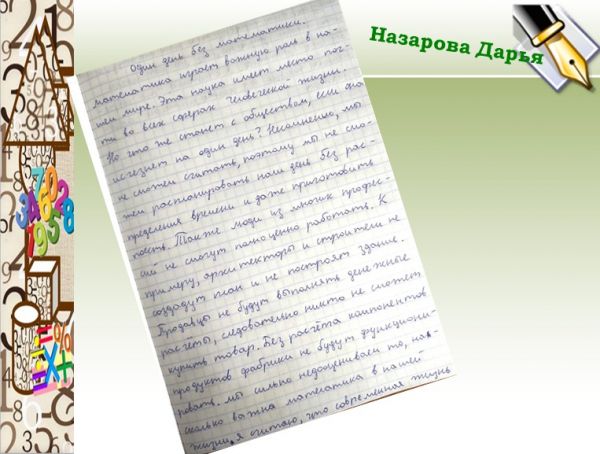 Назарова Дарья
Один день без математики.
Математика играет важную роль в на-
шем мире. Эта наука имеет место поч-
ти во всех сферах человеческой жизни.
Но что же станет с обществом, если она
исчезнет на один день? Несомненно, мы
не сможем считать, поэтому мы не смо-
жем распланировать наш день без рас-
пределения времени и даже приготовить
поесть. Также люди из многих профес-
сий не смогут полноценно работать. К
примеру, архитекторы и строители не
создадут план и не построят здание.
Продавцы не будут выполнять денежные
расчёты, следовательно никто не сможет
купить товар. Без расчёта компонентов
продуктов фабрики не будут функциони-
ровать. Мы сильно недооцениваем то, на-
сколько важна математика в нашей
жизни, я считаю, что современная жизнь